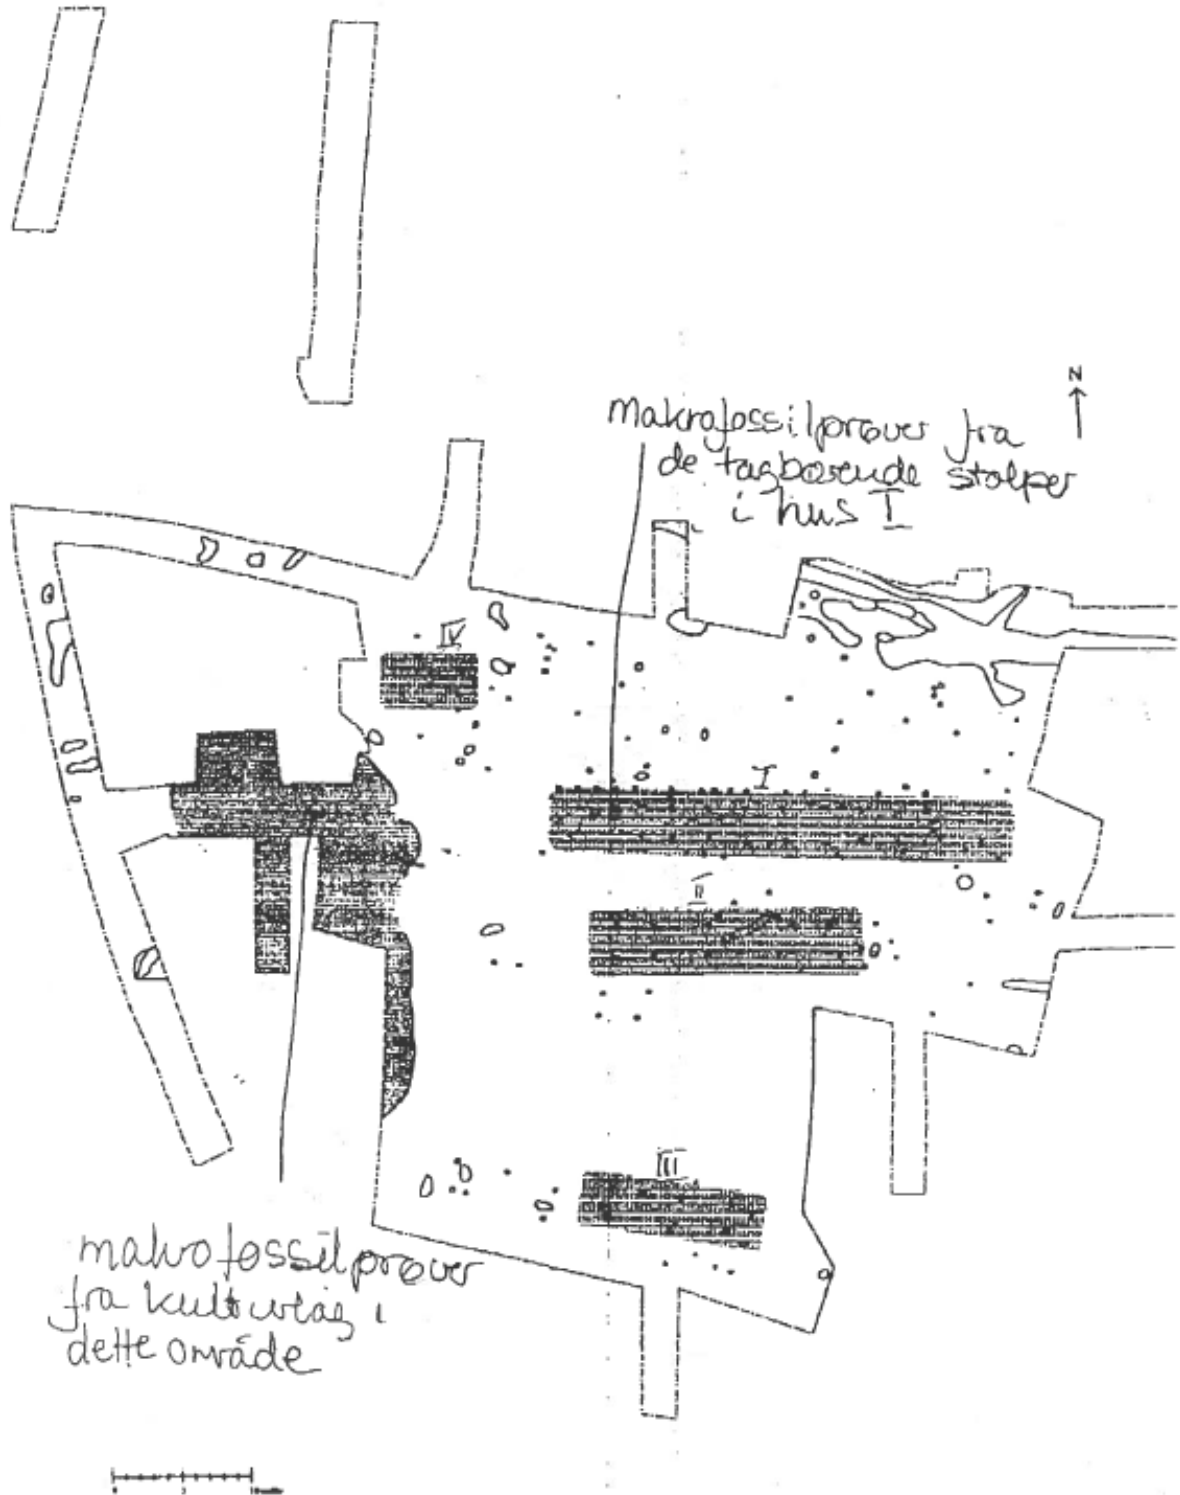 N
Makrofossilprøver fra
de tagbærende stolper
i hus I
IV
I
II
III
makrofossilprøver
fra kulturlag i
dette område